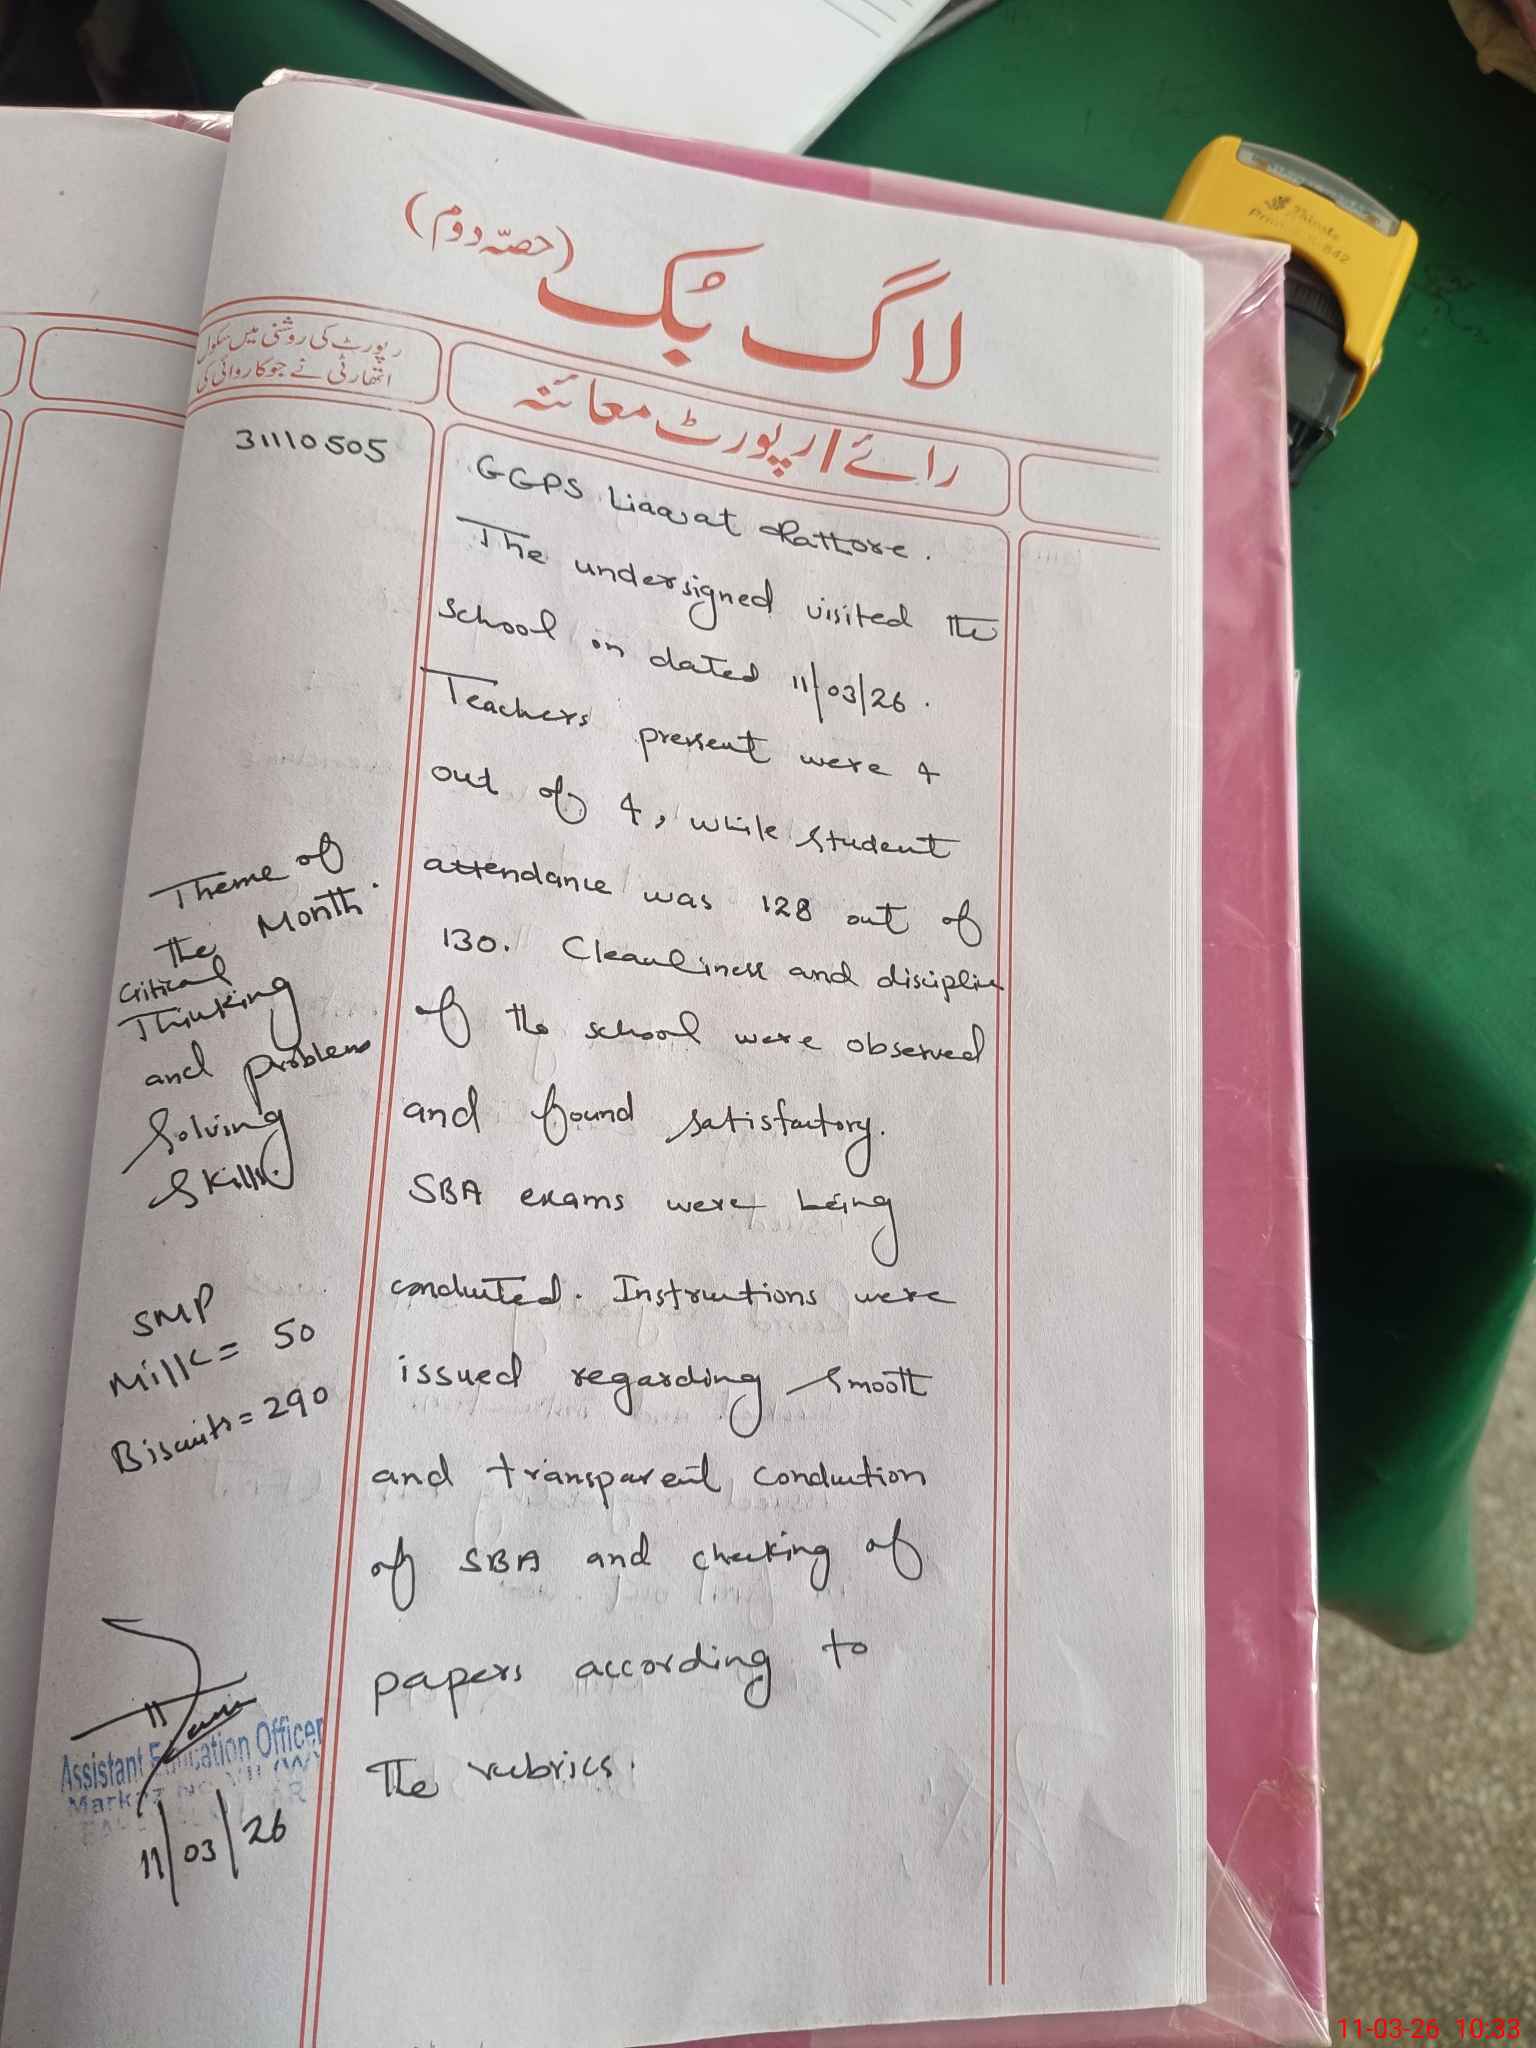 لاگ بُک (حصّہ دوم)
رپورٹ کی روشنی میں سکول
اتھارٹی نے جو کاروائی کی
رائے / رپورٹ معائنہ
31110505
GGPS Liaqat Chattore.
The undersigned visited the
school on dated 11/03/26.
Teachers present were 4
out of 4, while student
attendance was 128 out of
130. Cleanliness and disciplin
of the school were observed
and found satisfactory.
SBA exams were being
conducted. Instructions were
issued regarding smooth
and transparent conduction
of SBA and checking of
papers according to
the rubrics.
Theme of
the Month.
Critical
Thinking
and problem
Solving
Skills.
SMP
Milk = 50
Biscuits = 290
Assistant Education Officer
Markaz
11/03/26
11-03-26 10:33